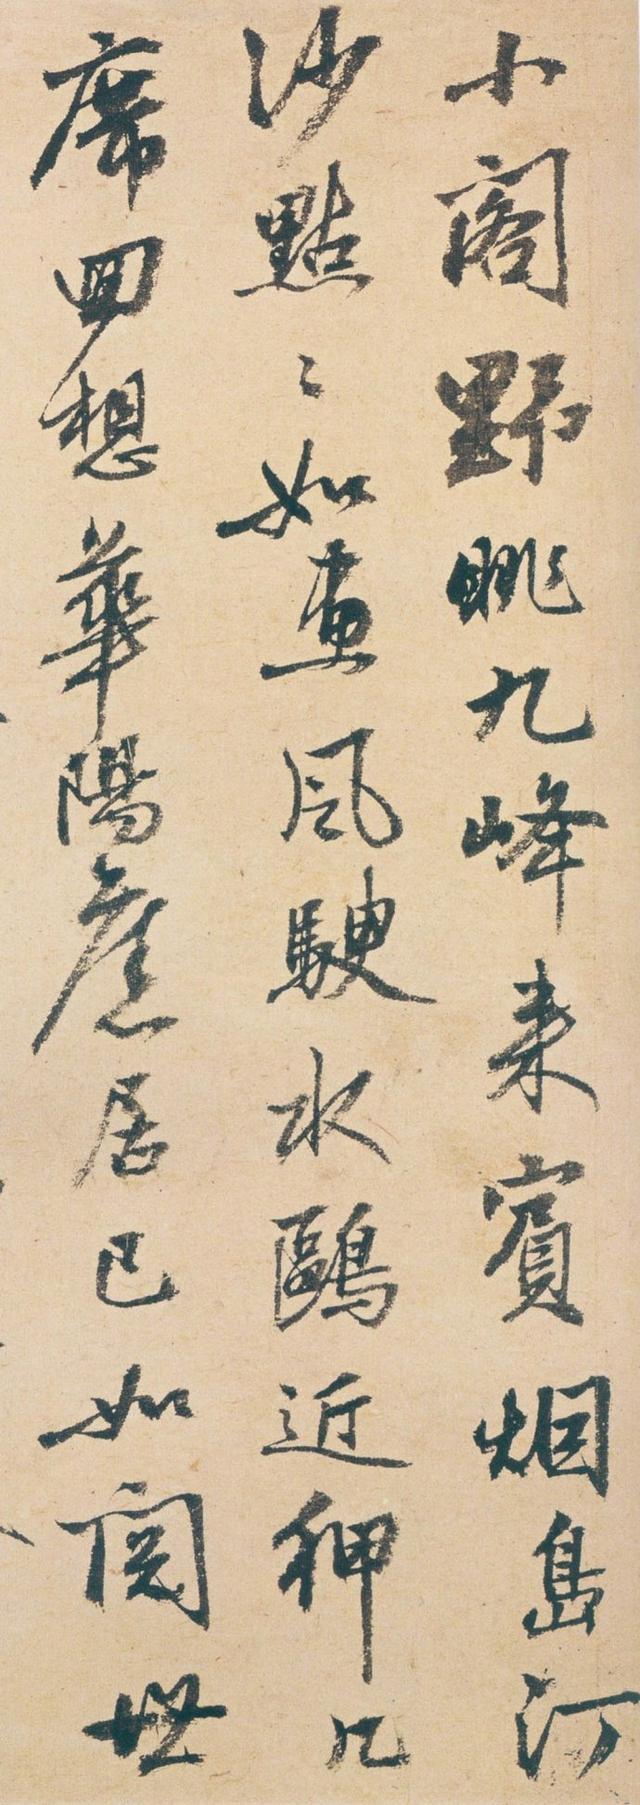 小閣野眺九峰来賓烟島汀
沙點〻如畫風駛水鷗近狎几
席回想華陽舊居已如閱世